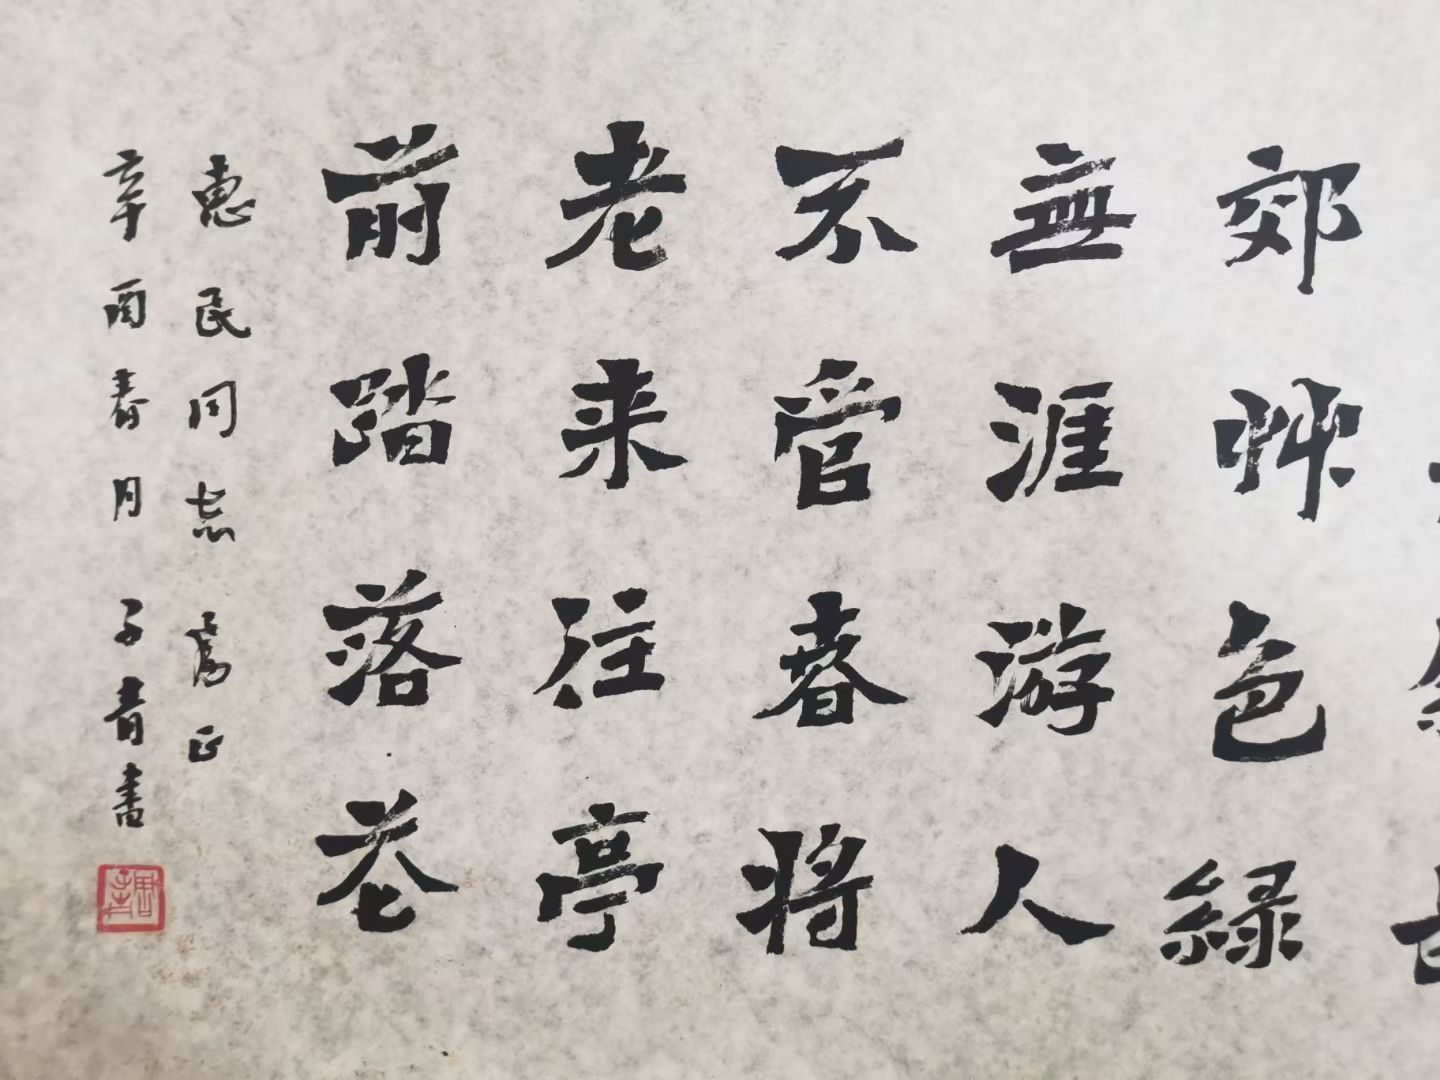 郊艸色綠
無涯游人
不管春將
老来往亭
前踏落花
惠民同志屬正
辛酉春月子青書